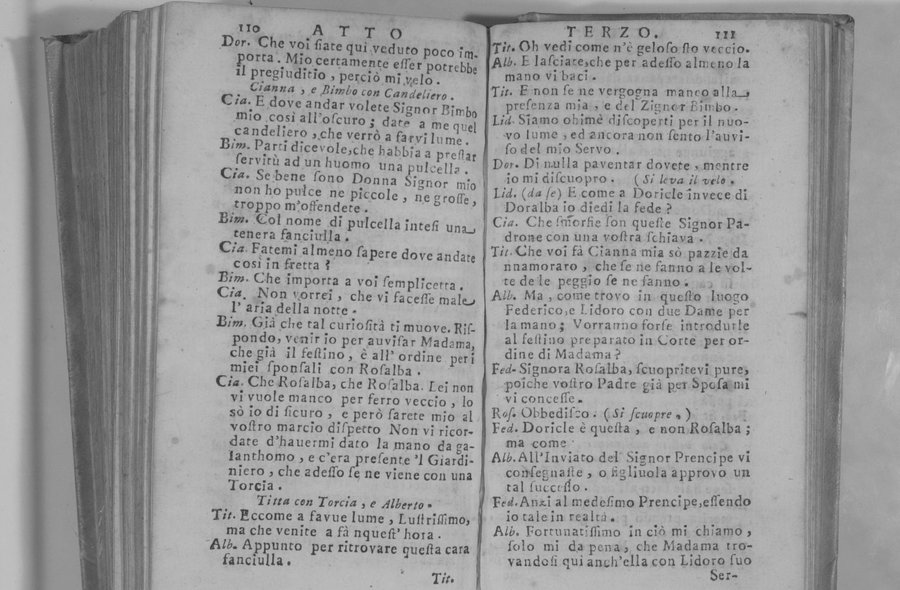 110 ATTO
Dor. Che voi ſiate qui veduto poco im-
porta. Mio certamente eſſer potrebbe
il pregiuditio, perciò mi velo.
Cianna, e Bimbo con Candeliero.
Cia. E dove andar volete Signor Bimbo
mio così all'oſcuro; date a me quel
candeliero, che verrò a farvi lume.
Bim. Parti dicevole, che habbia a preſtar
ſervitù ad un huomo una pulcella.
Cia. Se bene ſono Donna Signor mio
non ho pulce ne piccole, ne groſſe,
troppo m'offendete.
Bim. Col nome di pulcella inteſi una
tenera fanciulla.
Cia. Fatemi almeno ſapere dove andate
così in fretta?
Bim. Che importa a voi ſemplicetta.
Cia. Non vorrei, che vi faceſſe male
l'aria della notte.
Bim. Già che tal curioſità ti muove. Riſ-
pondo, venir io per auviſar Madama,
che già il feſtino, è all'ordine per i
miei ſponſali con Roſalba.
Cia. Che Roſalba, che Roſalba. Lei non
vi vuole manco per ferro vecchio, lo
sò io di ſicuro, e però ſarete mio al
voſtro marcio diſpetto Non vi ricor-
date d'hauermi dato la mano da ga-
lanthomo, e c'era preſente 'l Giardi-
niero, che adeſſo ſe ne viene con una
Torcia.
Titta con Torcia, e Alberto.
Tit. Eccome a favue lume, Luſtriſſimo,
ma che venite a fà nqueſt'hora.
Alb. Appunto per ritrovare queſta cara
fanciulla.
Tit.
TERZO. 111
Tit. Oh vedi come n'è geloſo ſto veccio.
Alb. E laſciate, che per adeſſo almeno la
mano vi baci.
Tit. E non ſe ne vergogna manco alla
preſenza mia, e del Zignor Bimbo.
Lid. Siamo ohimè diſcoperti per il nuo-
vo lume, ed ancora non ſento l'auvi-
ſo del mio Servo.
Dor. Di nulla paventar dovete, mentre
io mi diſcuopro. (Si leva il velo.
Lid. (da ſe) E come a Doricle invece di
Doralba io diedi la fede?
Cia. Che ſmorfie ſon queſte Signor Pa-
drone con una voſtra ſchiava.
Tit. Che voi fà Cianna mia sò pazzie da
nnamoraro, che ſe ne fanno a le vol-
te de le peggio ſe ne fanno.
Alb. Ma, come trovo in queſto luogo
Federico, e Lidoro con due Dame per
la mano; Vorranno forſe introdurle
al feſtino preparato in Corte per or-
dine di Madama?
Fed. Signora Roſalba, ſcuopritevi pure,
poiche voſtro Padre già per Spoſa mi
vi conceſſe.
Roſ. Obbediſco. (Si ſcuopre.)
Fed. Doricle è queſta, e non Roſalba;
ma come
Alb. All'Inviato del Signor Prencipe vi
conſegnaſte, o figliuola approvo un
tal ſucceſſo.
Fed. Anzi al medeſimo Prencipe, eſſendo
io tale in realtà.
Alb. Fortunatiſſimo in ciò mi chiamo,
ſolo mi da pena, che Madama tro-
vandoſi qui anch'ella con Lidoro ſuo
Ser-